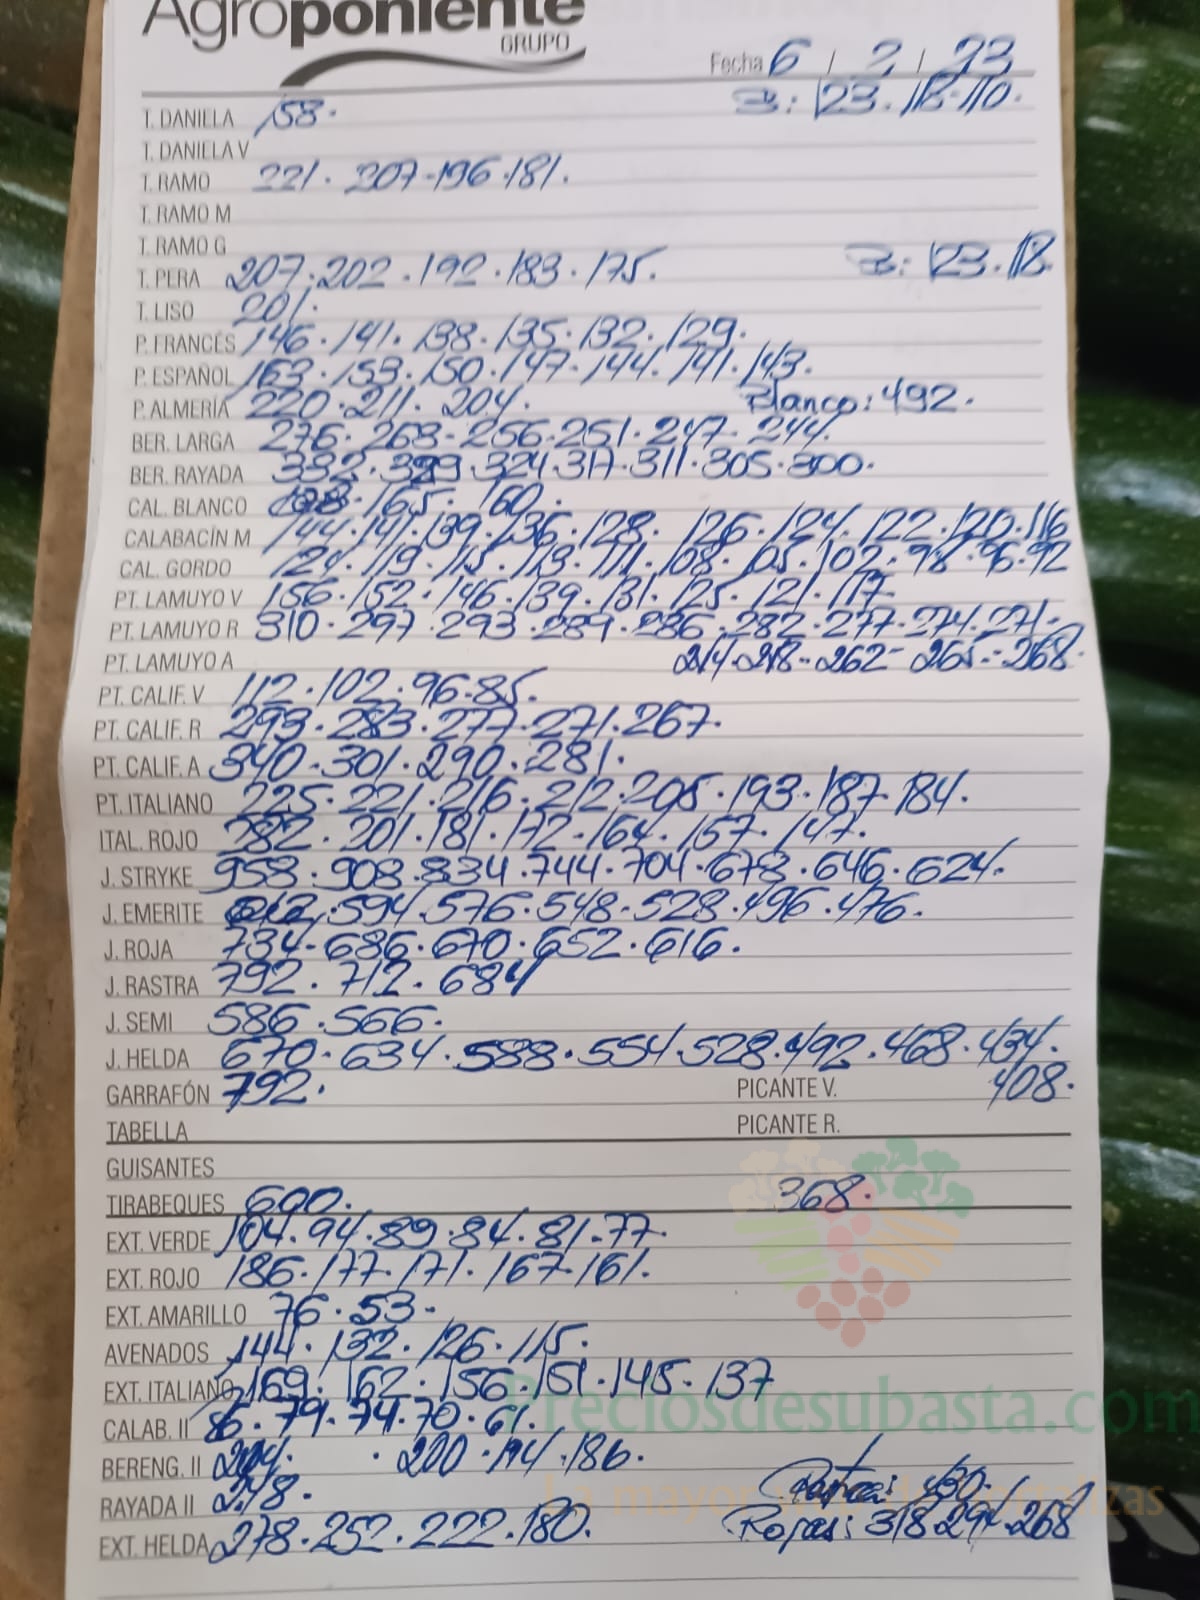 Agroponiente
GRUPO
Fecha 6 / 2 / 23
T. DANELA 158. 3: 123. 118-110.
T. DANIELA V
T. RAMO 221. 207-196-181.
T. RAMO M
T. RAMO G
T. PERA 207.202.192.183.175. 3: 123.118
T. LISO 201.
P. FRANCÉS 146.141.138.135.132.129.
P. ESPAÑOL 163.153.150.147-144.141.143.
P. ALMERÍA 220.211.204. Blanco: 492.
BER. LARGA 276.268-256-251.247-244.
BER. RAYADA 332.329.324.317.311.305.300.
CAL. BLANCO 165. 160.
CALABACÍN M 144.141.139.136.128.126.124.122.120.116
CAL. GORDO 121.119.115.113.111.108.105.102.98.96.92
PT. LAMUYO V 156.152.146.139.131.125.121.117
PT. LAMUYO R 310.297.293.289.286.282.277.274.271-
PT. LAMUYO A 262-265-268.
PT. CALIF. V 112.102.96.85.
PT. CALIF. R 293.283.277-271.267.
PT. CALIF. A 340.301.290.281.
PT. ITALIANO 225.221.216.212.205.193.187.184.
ITAL. ROJO 282.201.181.172-164.157.147.
J. STRYKE 958.908.834.744.704.678.646.624.
J. EMERITE 612.594.576.548-528.496.476.
J. ROJA 734-686.670.652.616.
J. RASTRA 792.712.684
J. SEMI 586.566.
J. HELDA 670.634.588.554.528.492.468.434.
GARRAFÓN 792. PICANTE V. 408.
TABELLA PICANTE R.
GUISANTES
TIRABEQUES 600. 368.
EXT. VERDE 104.94.89.84.81.77.
EXT. ROJO 186.177.171.167.161.
EXT. AMARILLO 76.53.
AVENADOS 144.132.126.115.
EXT. ITALIANO 169.162.156.151.145.137
Preciosdesubasta.com
CALAB. II 86.79.74.70.61.
BERENG. II 204. . 200.194.186.
La mayor hortalizas
RAYADA II 248. Rastra: 430.
EXT. HELDA 278.252.222.180. Rojas: 318.294.268